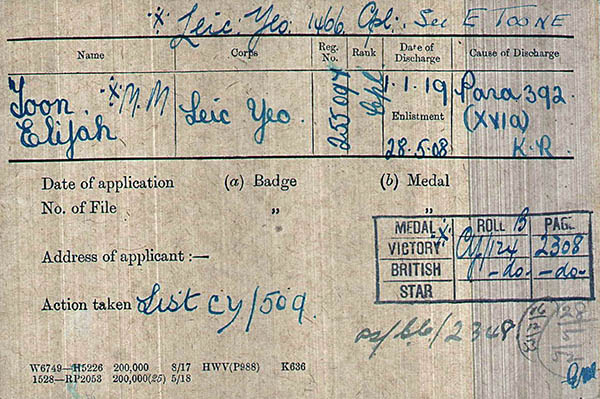 *X* Leic. Yeo. 1466 Cpl. See E TOONE
Name Corps Reg. No. Rank Date of Discharge Cause of Discharge
Toon *X* M.M Leic Yeo. 255094 Cpl 1.1.19 Para 392
Elijah Enlistment (XVIa)
28.5.08 K.R.
Date of application (a) Badge (b) Medal
No. of File " "
MEDAL ROLL B PAGE
VICTORY *X* 2308
Address of applicant :—
BRITISH -do- -do-
STAR
Action taken List CY/509.
W6749—H5226 200,000 8/17 HWV(P988) K636
1528—RP2053 200,000(25) 5/18